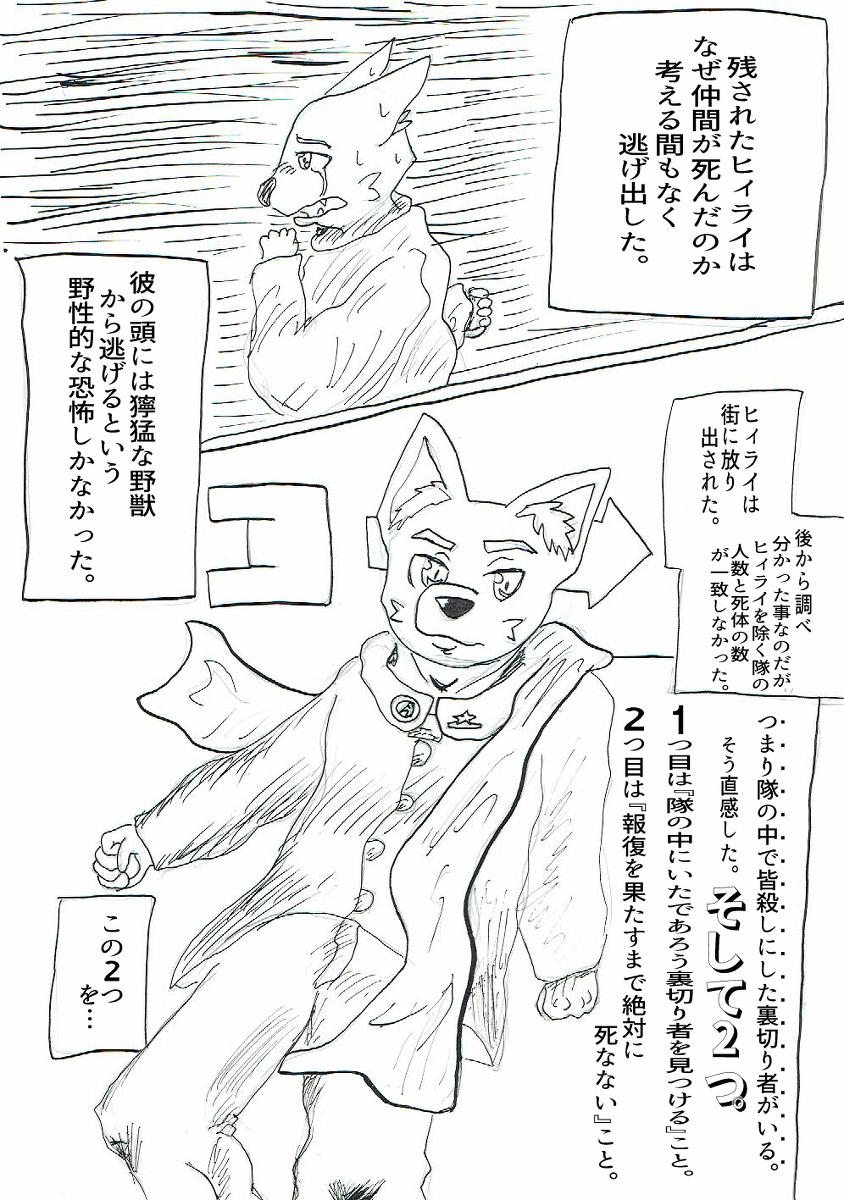 残されたヒィライは
なぜ仲間が死んだのか
考える間もなく
逃げ出した。
彼の頭には獰猛な野獣
から逃げるという
野性的な恐怖しかなかった。
ヒィライは
街に放り
出された。
後から調べ
分かった事なのだが
ヒィライを除く隊の
人数と死体の数
が一致しなかった。
つまり隊の中で皆殺しにした裏切り者がいる。
そう直感した。
そして2つ。
1つ目は『隊の中にいたであろう裏切り者を見つける』こと。
2つ目は『報復を果たすまで絶対に
死なない』こと。
この2つ
を…